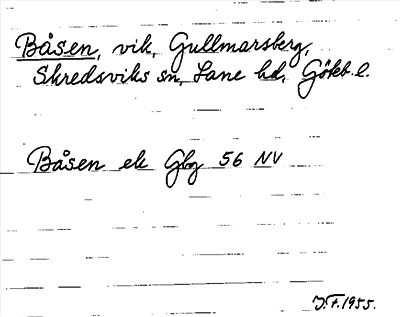 Båsen, vik, Gullmarsberg,
Skredsviks sn, Lane hd, Göteb. l.
Båsen ek Gbg 56 NV
J.F. 1955.